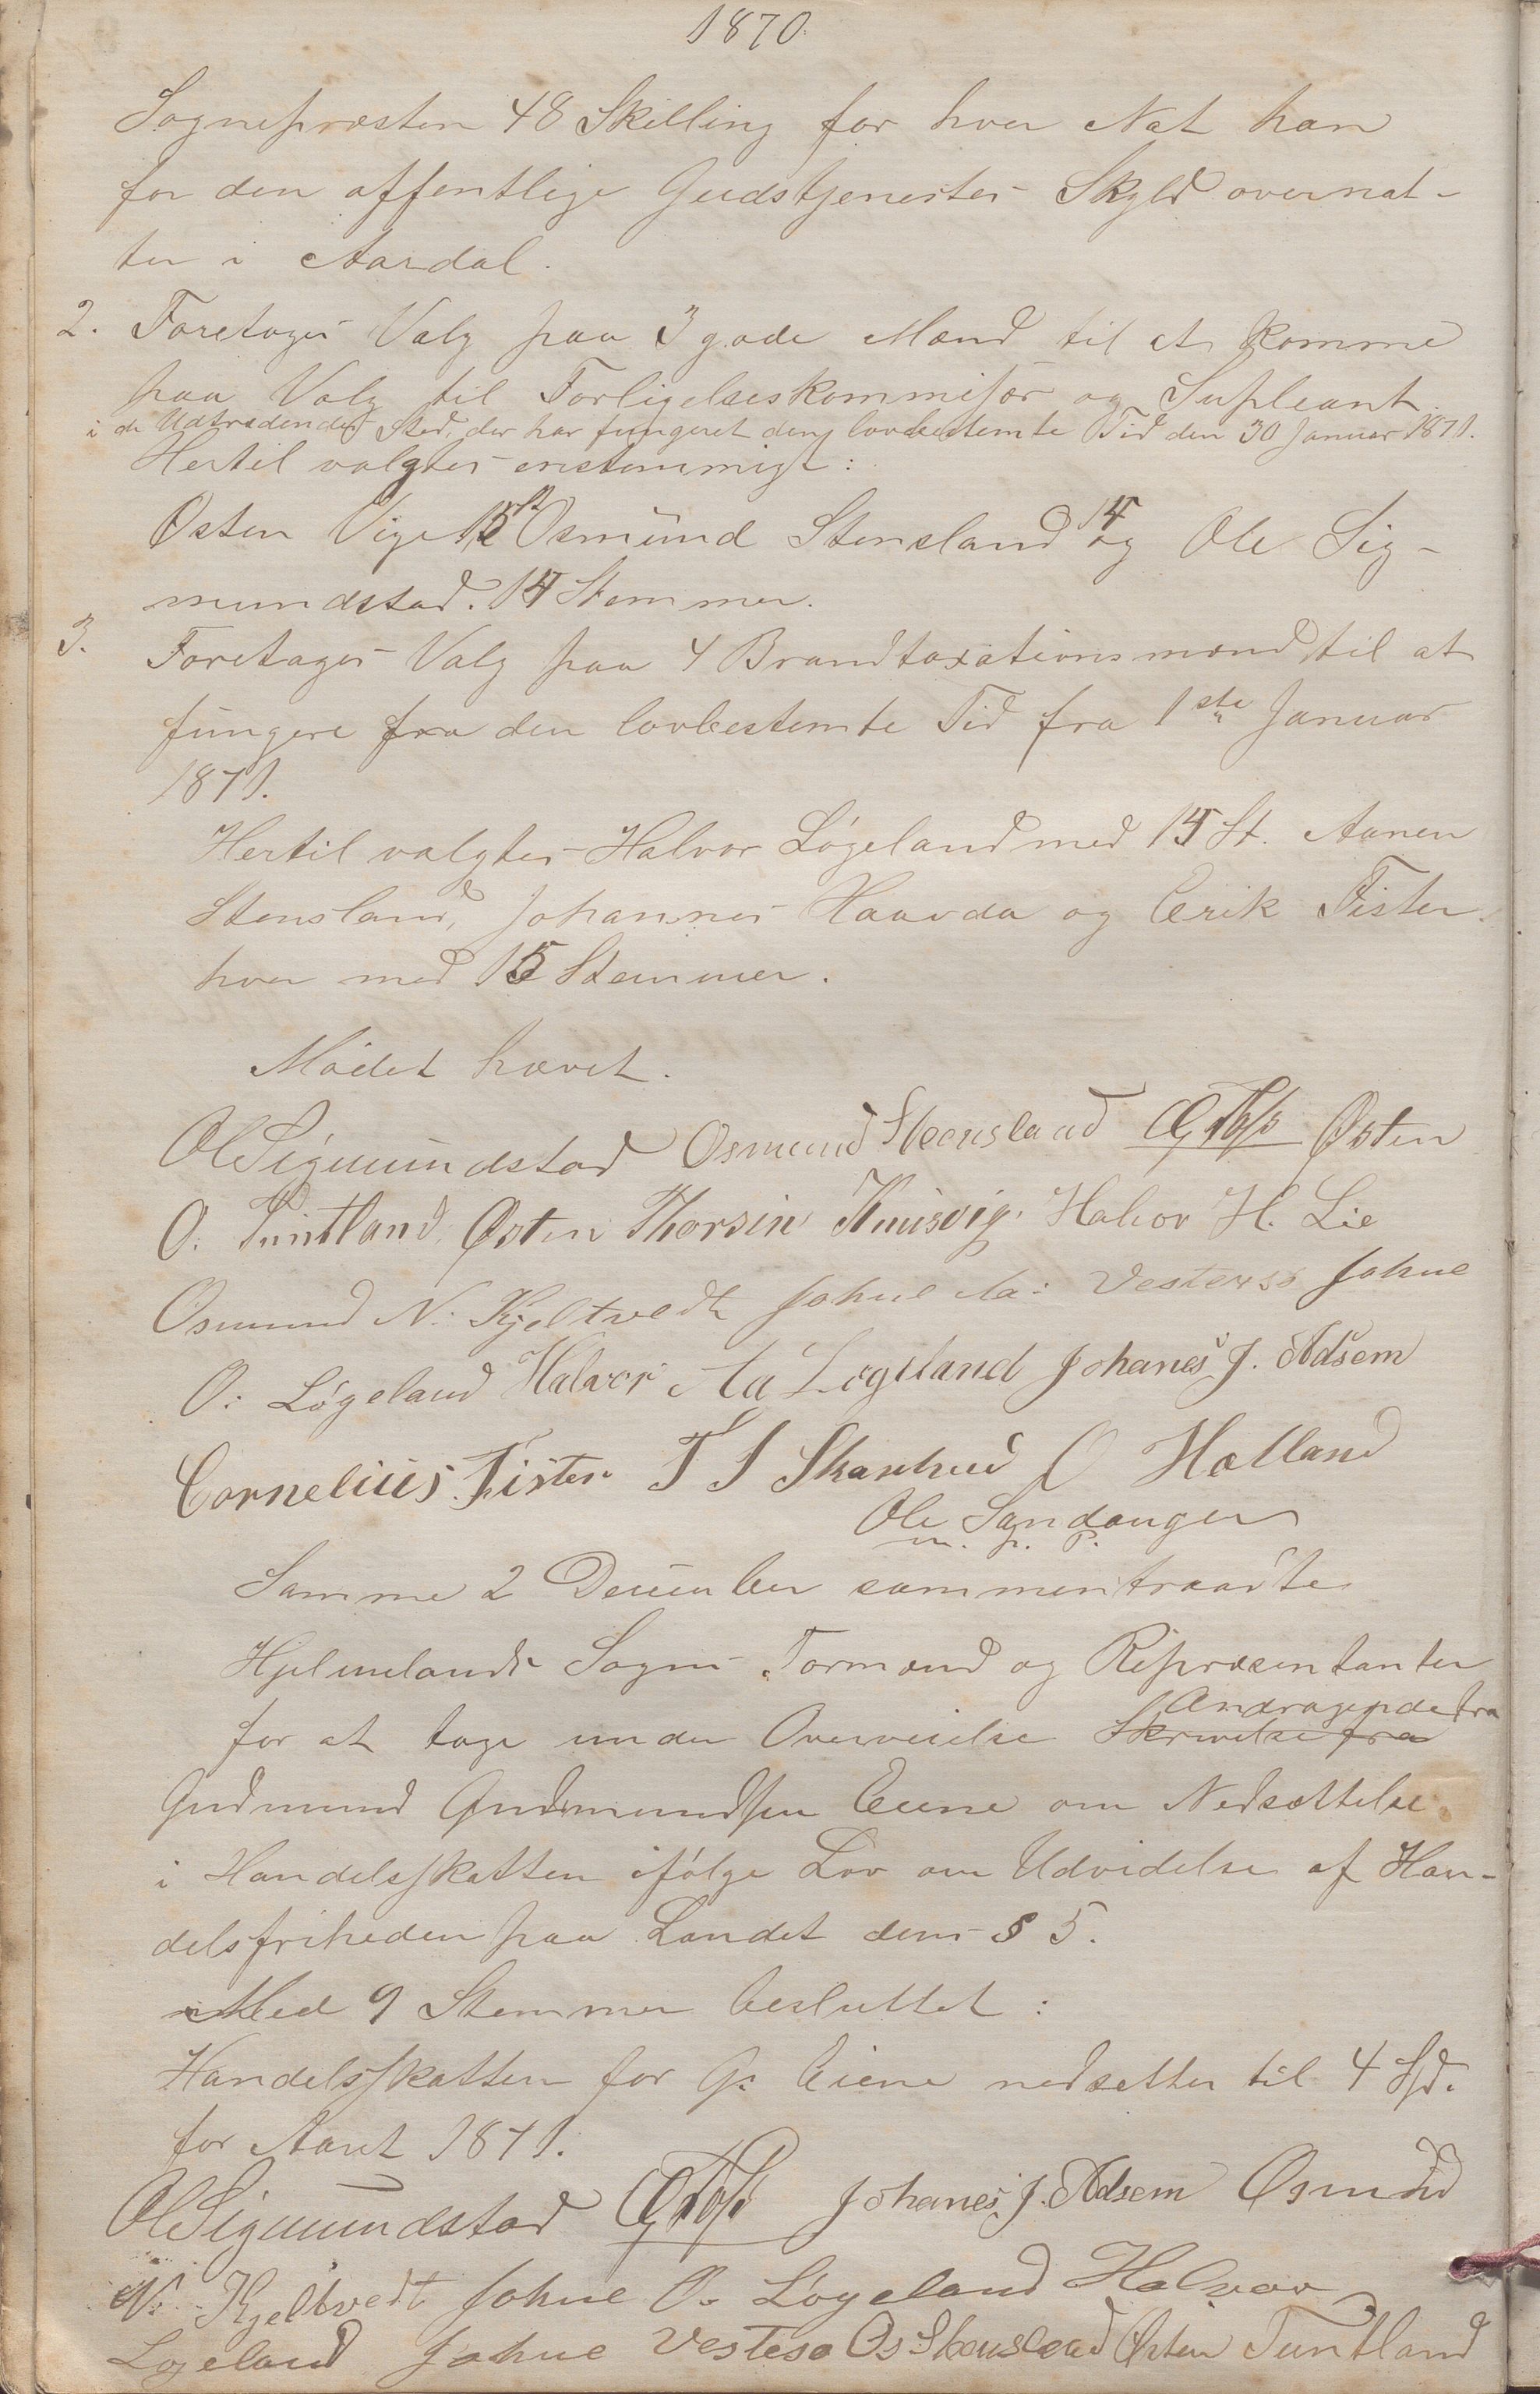 1870.
Sognepræsten 48 Skilling for hver Nat han
for den offentlige Gudstjenestes Skyld overnat-
ter i Aardal.
2. Foretoges Valg paa 3 gode Mænd til at komme
paa Valg til Forligelseskommisær og Supleant
i de Udtrædendes Sted, der har fungeret den lovbestemte Tid den 30 Januar 1871.
Hertil valgtes enstemmigt:
Østen Vige 15 St Osmund Stensland 14 og Ole Sig-
mundstad. 14 Stemmer.
3. Foretoges Valg paa 4 Brandtaxationsmænd til at
fungere fra den lovbestemte Tid fra 1ste Januar
1871.
Hertil valgtes Halvor Løgeland med 14 St. Aanen
Stensland, Johannes Haavda og Erik Fister
hver med 15 Stemmer.
Mødet hævet.
Ol Sigmundstad Osmund Stensland Østen
O. Tuntland, Østen Thorsin Knusvig Halvor H. Lie
Osmund N. Kjeltvedt Johne Aa: Vestersø Johne
O: Løgeland Halvor Aa Løgeland Johanes J. Adsem
Cornelius Fister T S O Hætland
Ole Sandanger
m. p. p.
Samme 2 December sammentraadte
Hjelmelands Sogns Formænd og Repræsentanter
for at tage under Overveielse Skrivelse fra Andragende fra
Gudmund Gudmundsen Eiene om Nedsættelse
i Handelsskatten ifølge Lov om Udvidelse af Han-
delsfriheden paa Landet dens § 5.
Med 9 Stemmer besluttet:
Handelsskatten for G. Eiene nedsættes til 4 Spd.
for Aaret 1871.
Ol Sigmundstad Johanes J. Adsem Osmund
N. Kjeltvedt Johne O. Løgeland Halvor
Løgeland Johne Vestersø Os Stensland Østen Tuntland